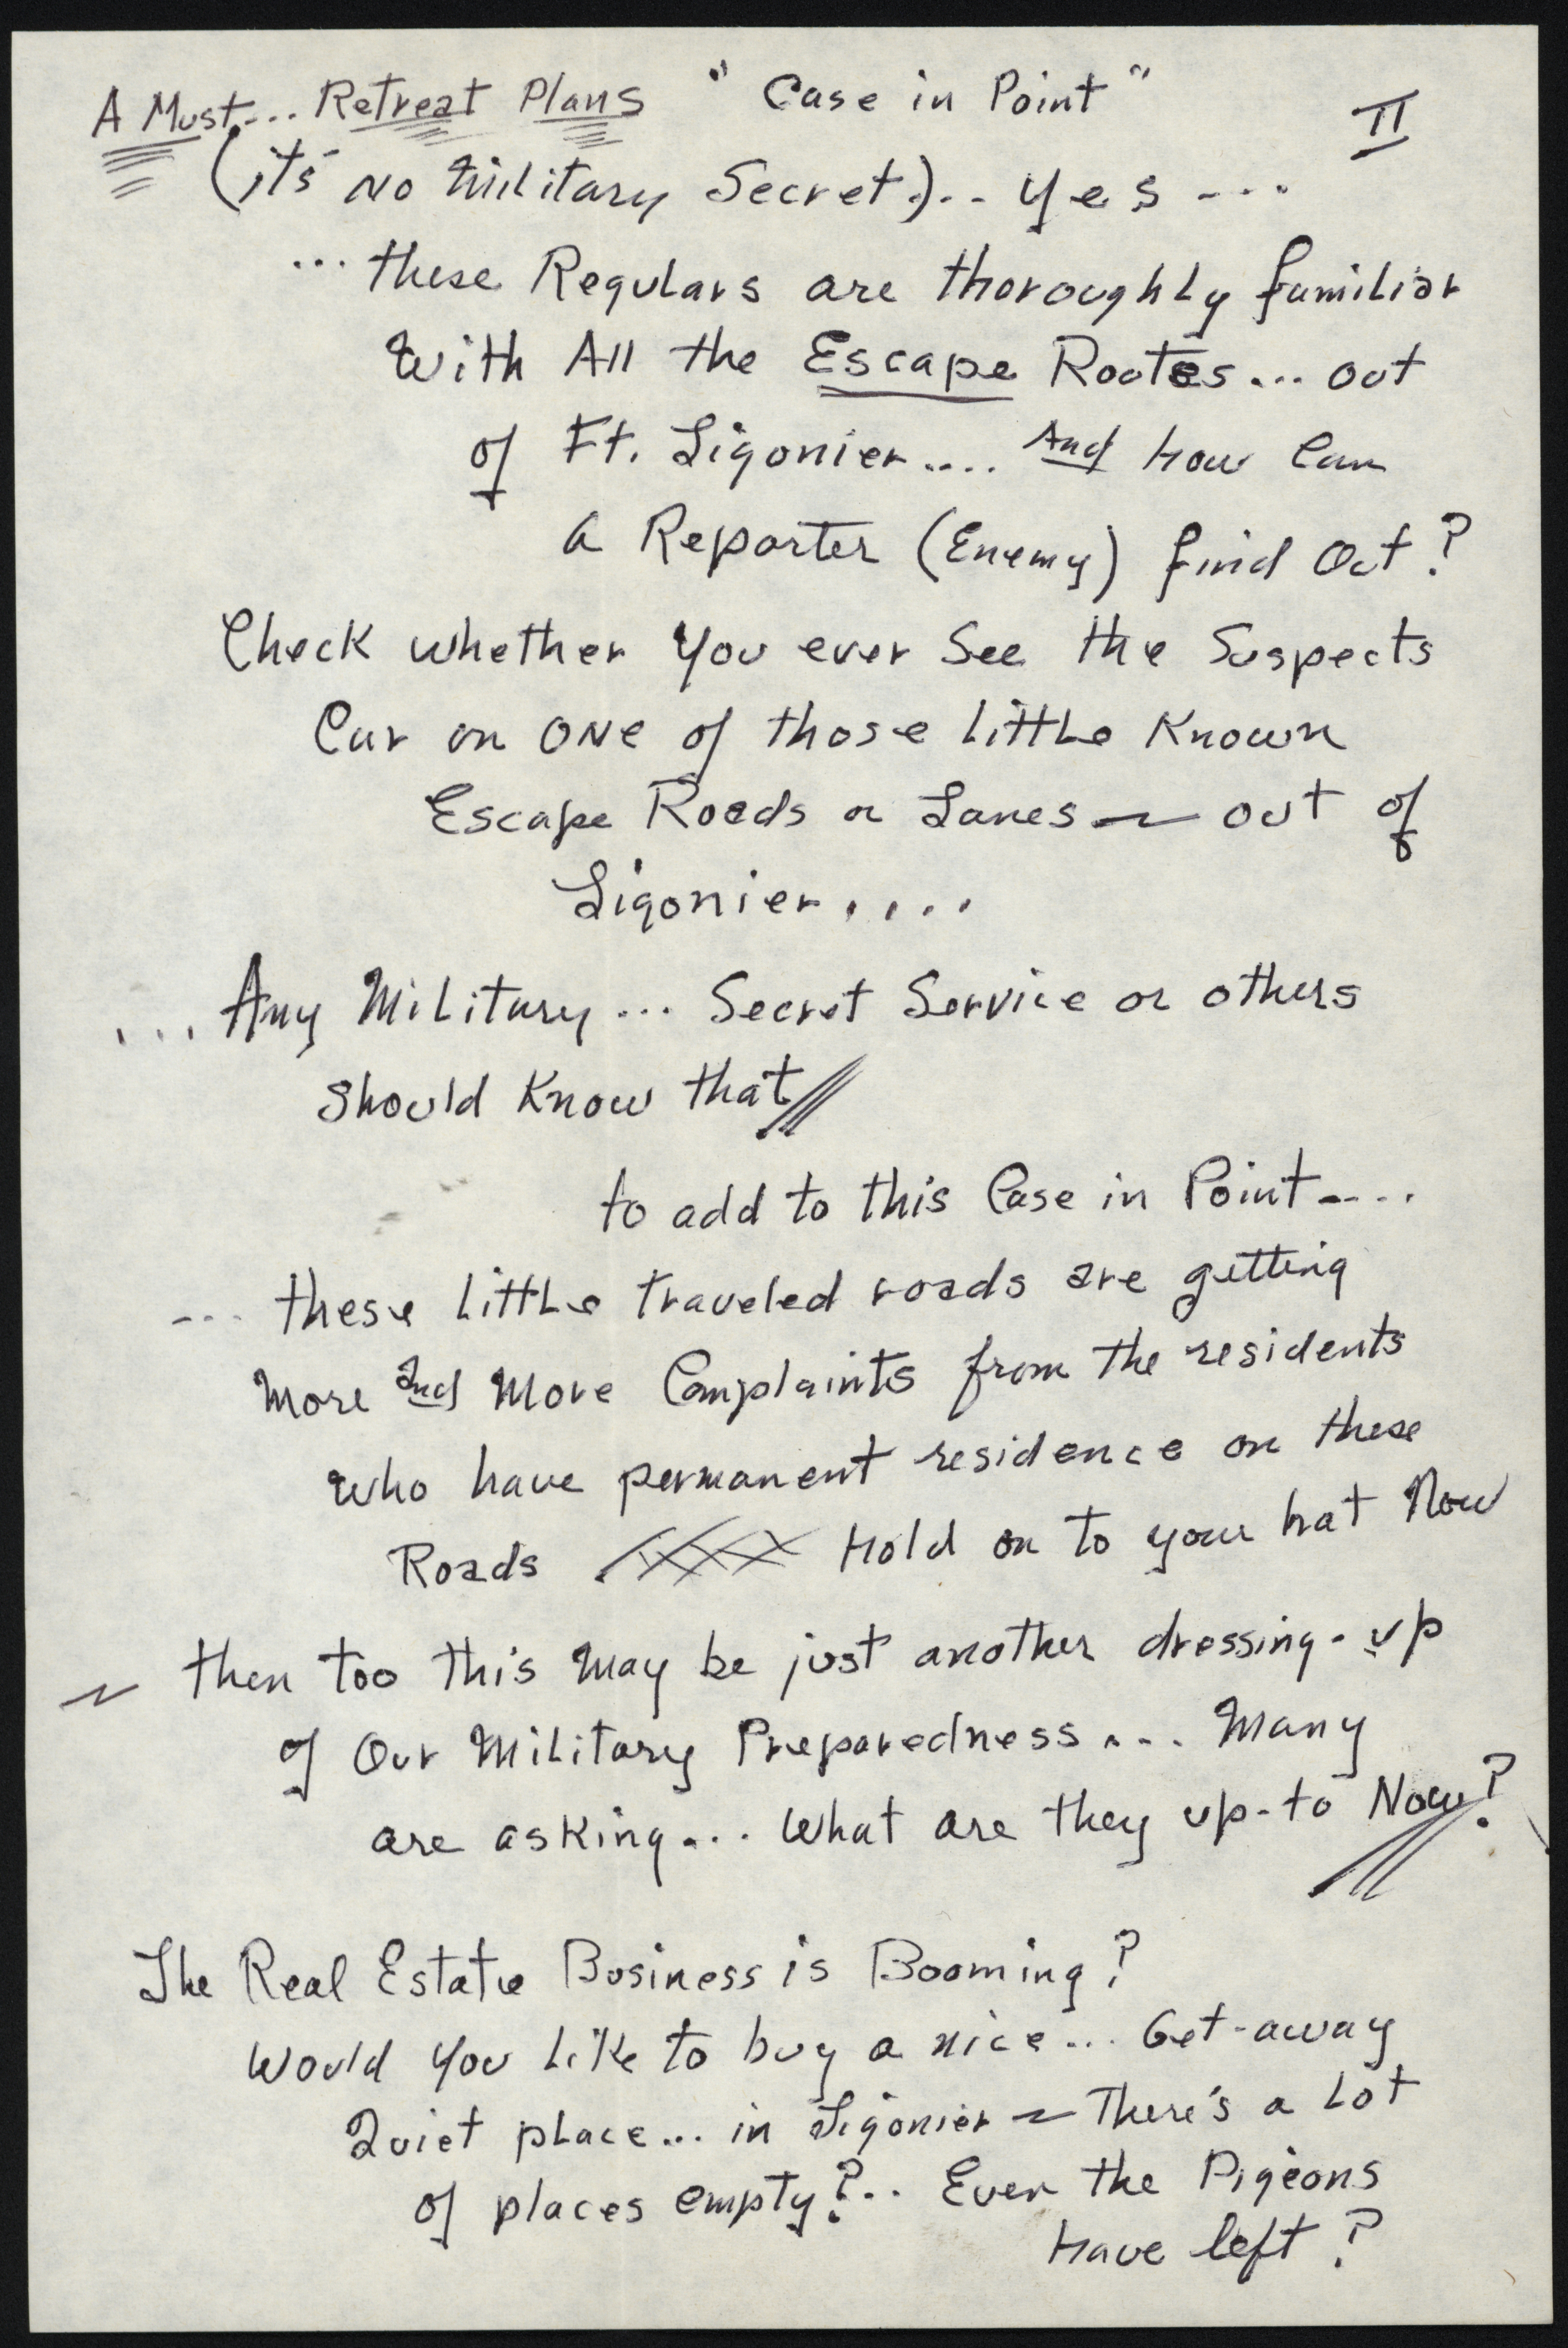 A Must... Retreat Plans " Case in Point " II
(it's NO Military Secret)... Yes ---
... these Regulars are thoroughly familiar
With All the Escape Rootes... out
of Ft. Ligonier.... And how Can
a Reporter (Enemy) find Out?
Check whether You ever See the Suspects
Car on ONE of those Little Known
Escape Roads or Lanes — out of
Ligonier....
... Any Military... Secret Service or others
Should Know that//
to add to this Case in Point----
--- these Little traveled roads are getting
More and More Complaints from the residents
who have permanent residence on these
Roads Hold on to your hat Now
~ then too this May be just another dressing-up
of Our Military Preparedness... Many
are asking... What are they up-to Now?
The Real Estate Business is Booming?
Would You Like to buy a nice... Get-away
Quiet place... in Ligonier ~ There's a Lot
of places empty?.. Even the Pigeons
Have left?